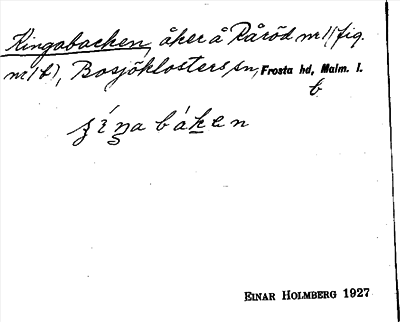 Kingabacken, åker å Råröd nr 1 (fig.
nr 1 b), Bosjöklosters sn, Frosta hd, Malm. l.
b
EINAR HOLMBERG 1927